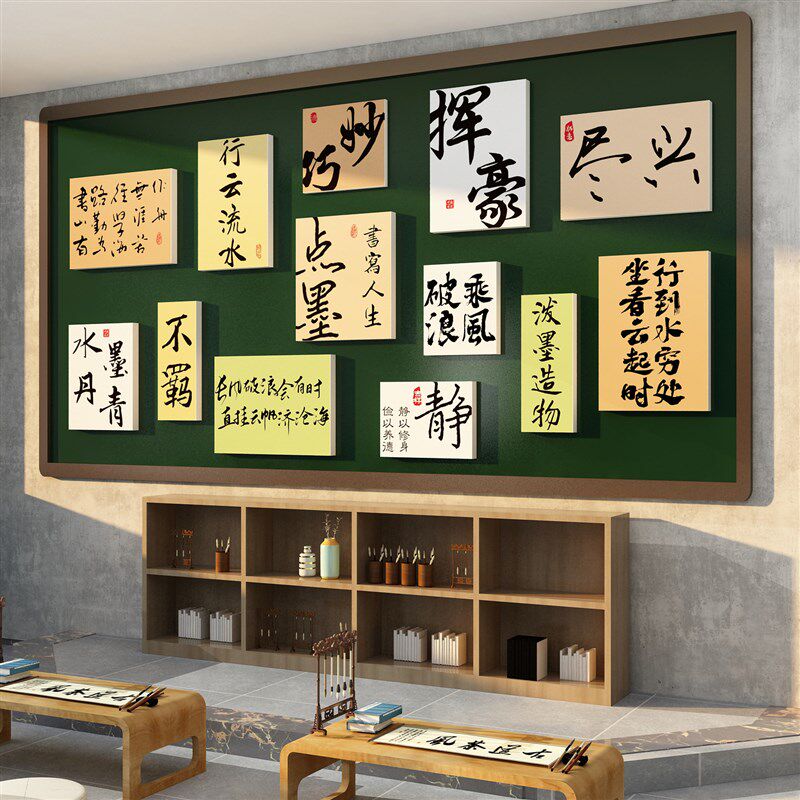 書山有
路勤为
径学海
無涯苦
作舟
行云流水
妙
巧
挥
豪
尽兴
点墨
書寫人生
乘風
破浪
行到水穷处
坐看云起时
水墨
丹青
不羁
长风破浪会有时
直挂云帆济沧海
静
静以修身
俭以养德
泼墨造物